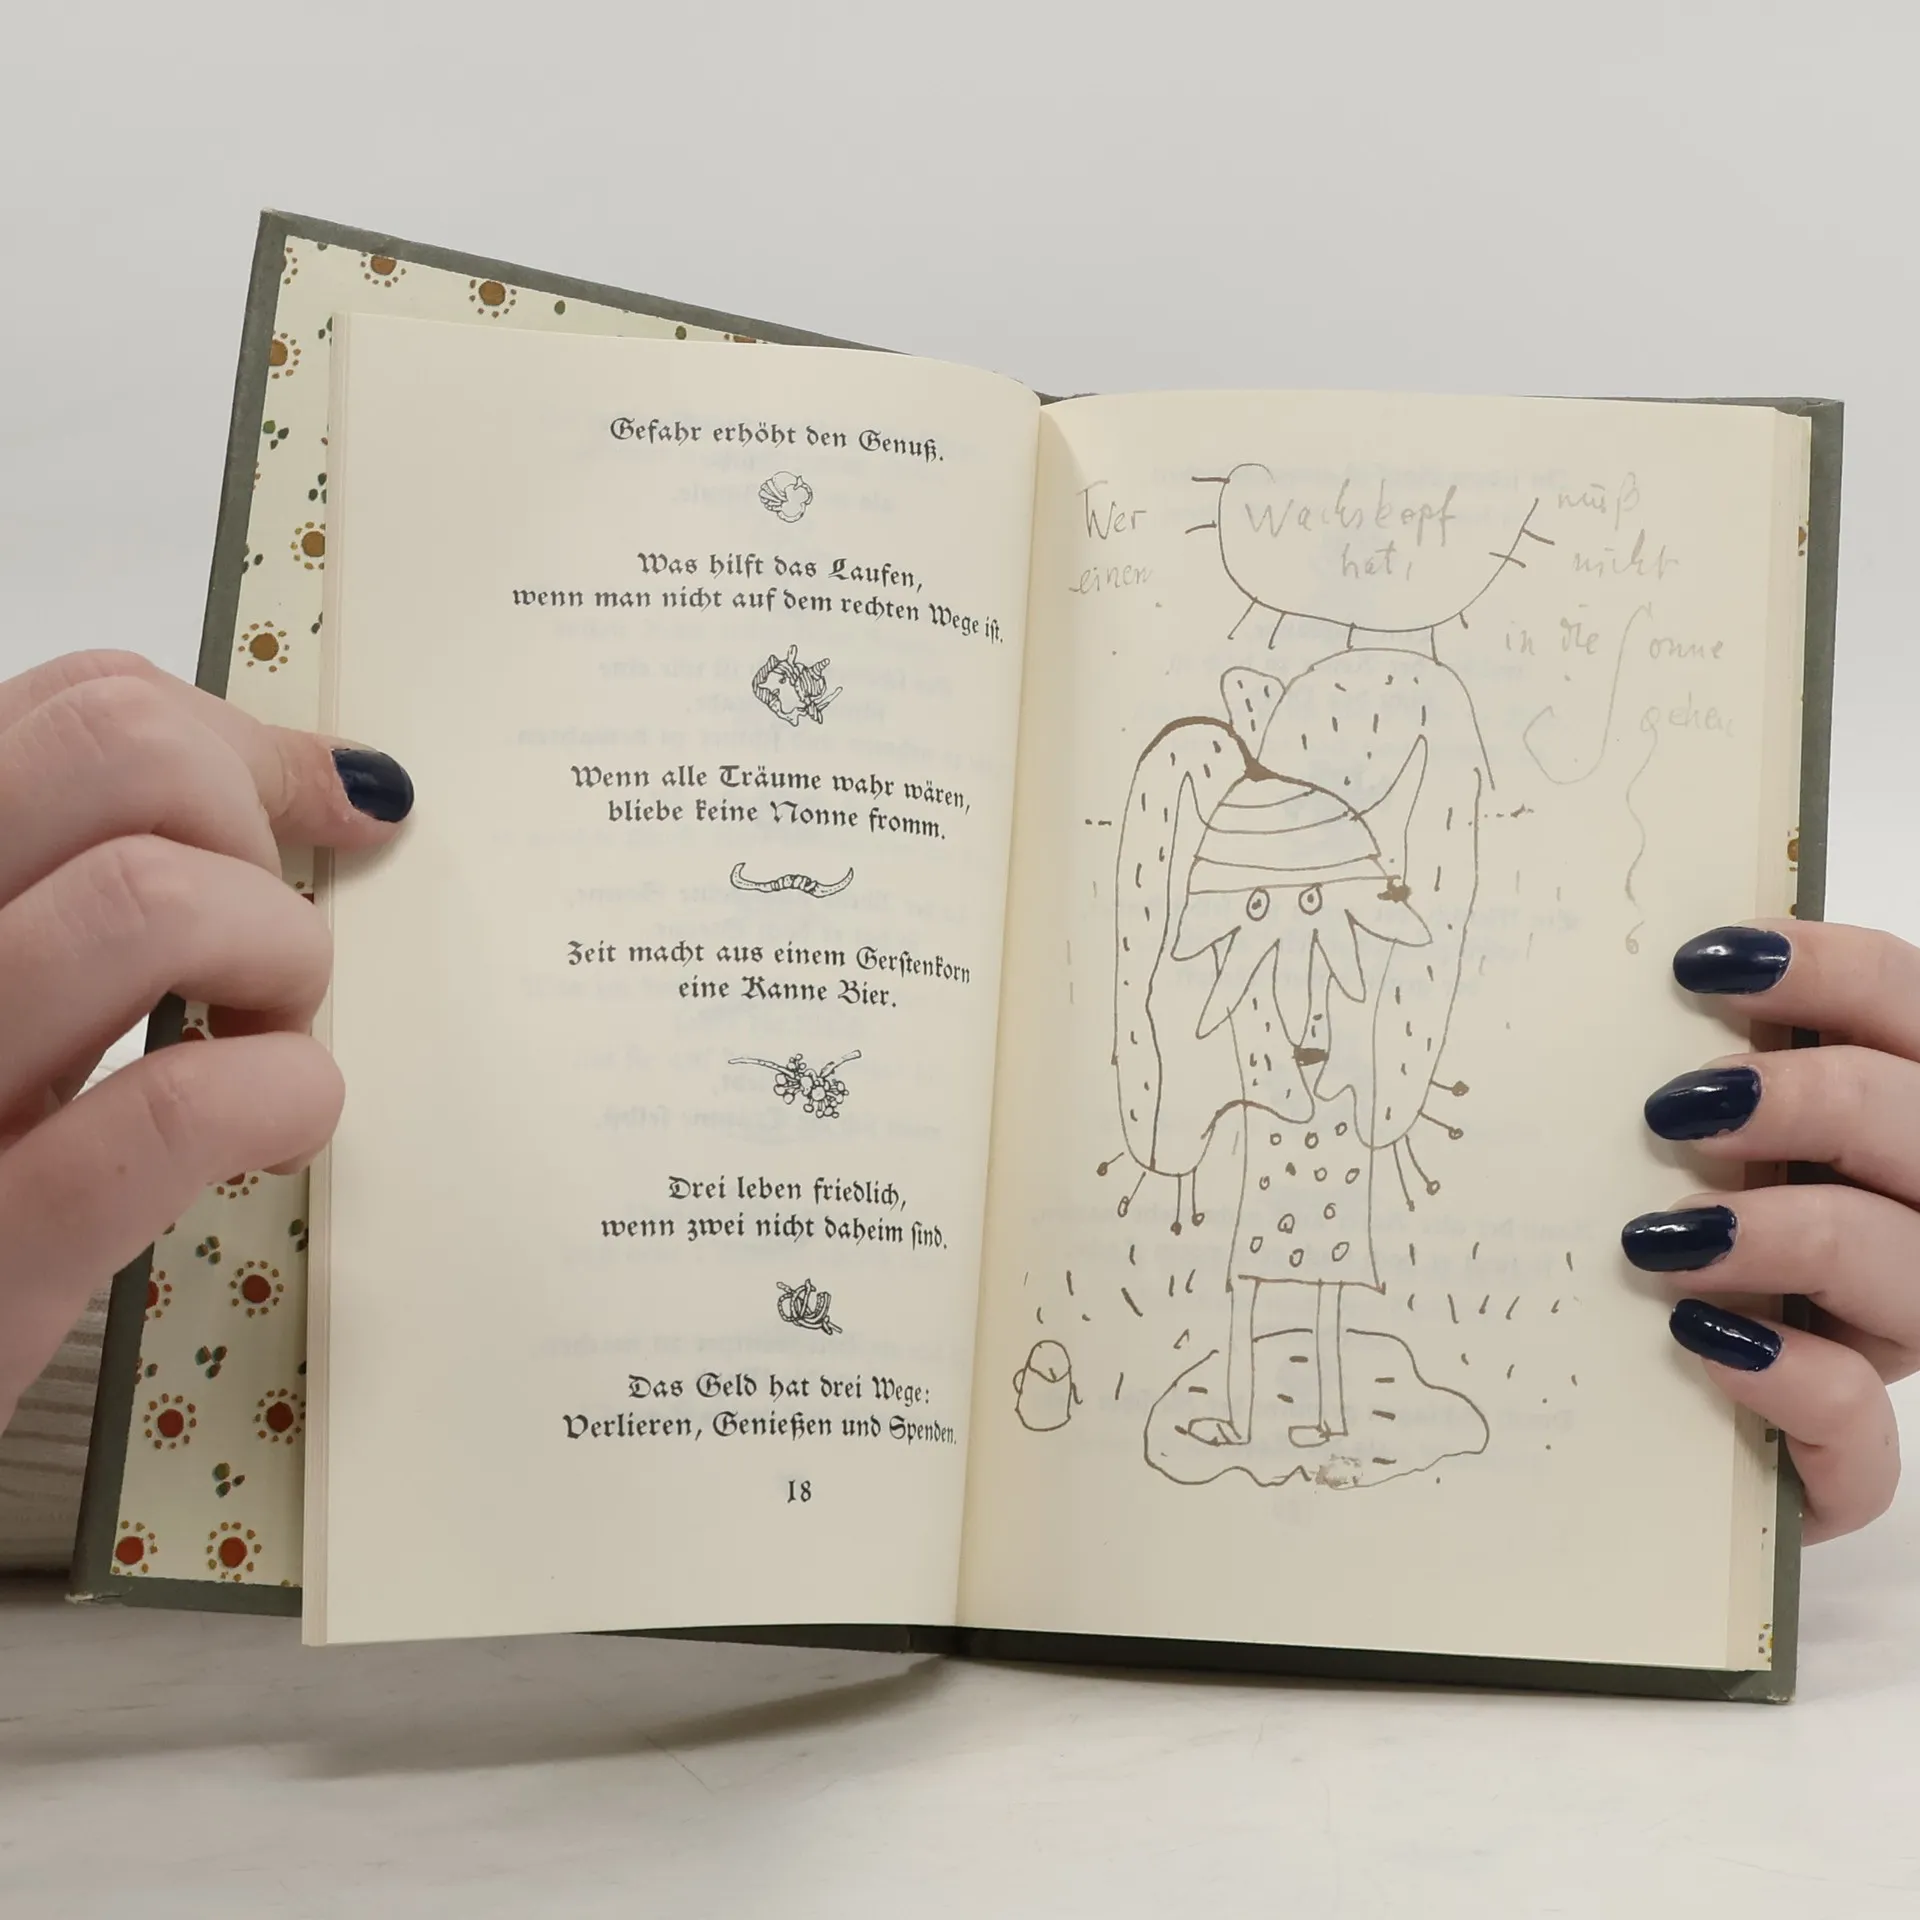 Gefahr erhöht den Genuß.
Was hilft das Laufen,
wenn man nicht auf dem rechten Wege ist.
Wenn alle Träume wahr wären,
bliebe keine Nonne fromm.
Zeit macht aus einem Gerstenkorn
eine Kanne Bier.
Drei leben friedlich,
wenn zwei nicht daheim sind.
Das Geld hat drei Wege:
Verlieren, Genießen und Spenden.
18
Wer
einen
Wachskopf
hat,
muß
nicht
in die Sonne
gehen